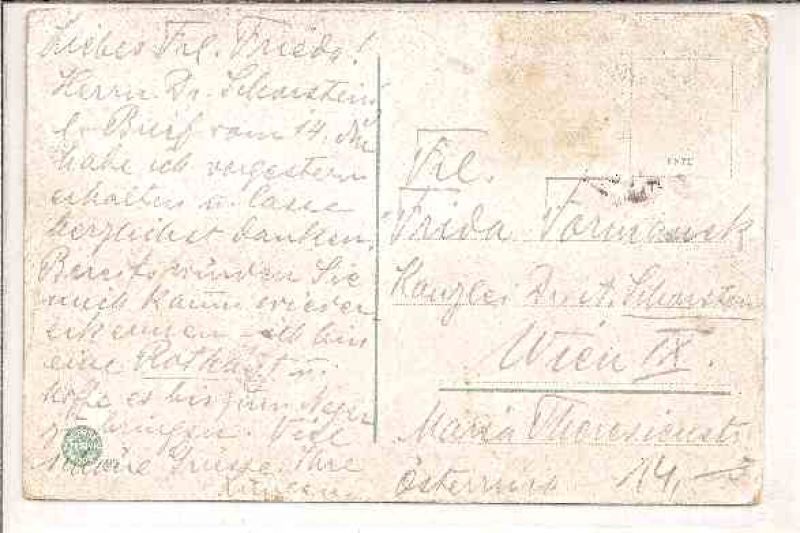 Liebes Frl. Frieda!
Herrn Dr. Scharstein's
l. Brief vom 14. 
habe ich vorgestern
erhalten u. lasse
herzlichst danken.
Bereits würden Sie
mich kaum wieder
erkennen - ich bin
eine Rothaut u.
hoffe es bis zum Neger
zu bringen. Viele
Grüsse, Ihre
Frl.
Frida
Kanzlei Dr. Scharstein
Wien IX.
Maria Theresienstr.
Österreich
14,-